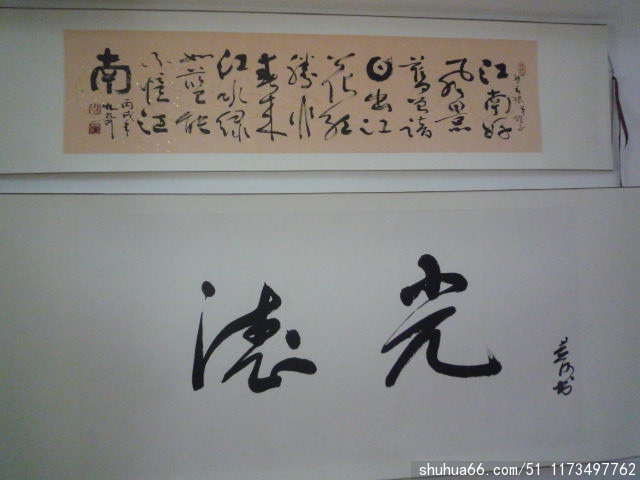 江南好
风景
舊曾諳
日出江
花红
勝火
春来
江水绿
如藍能
不憶江
南
丙戌年
光德
shuhua66.com/51 1173497762